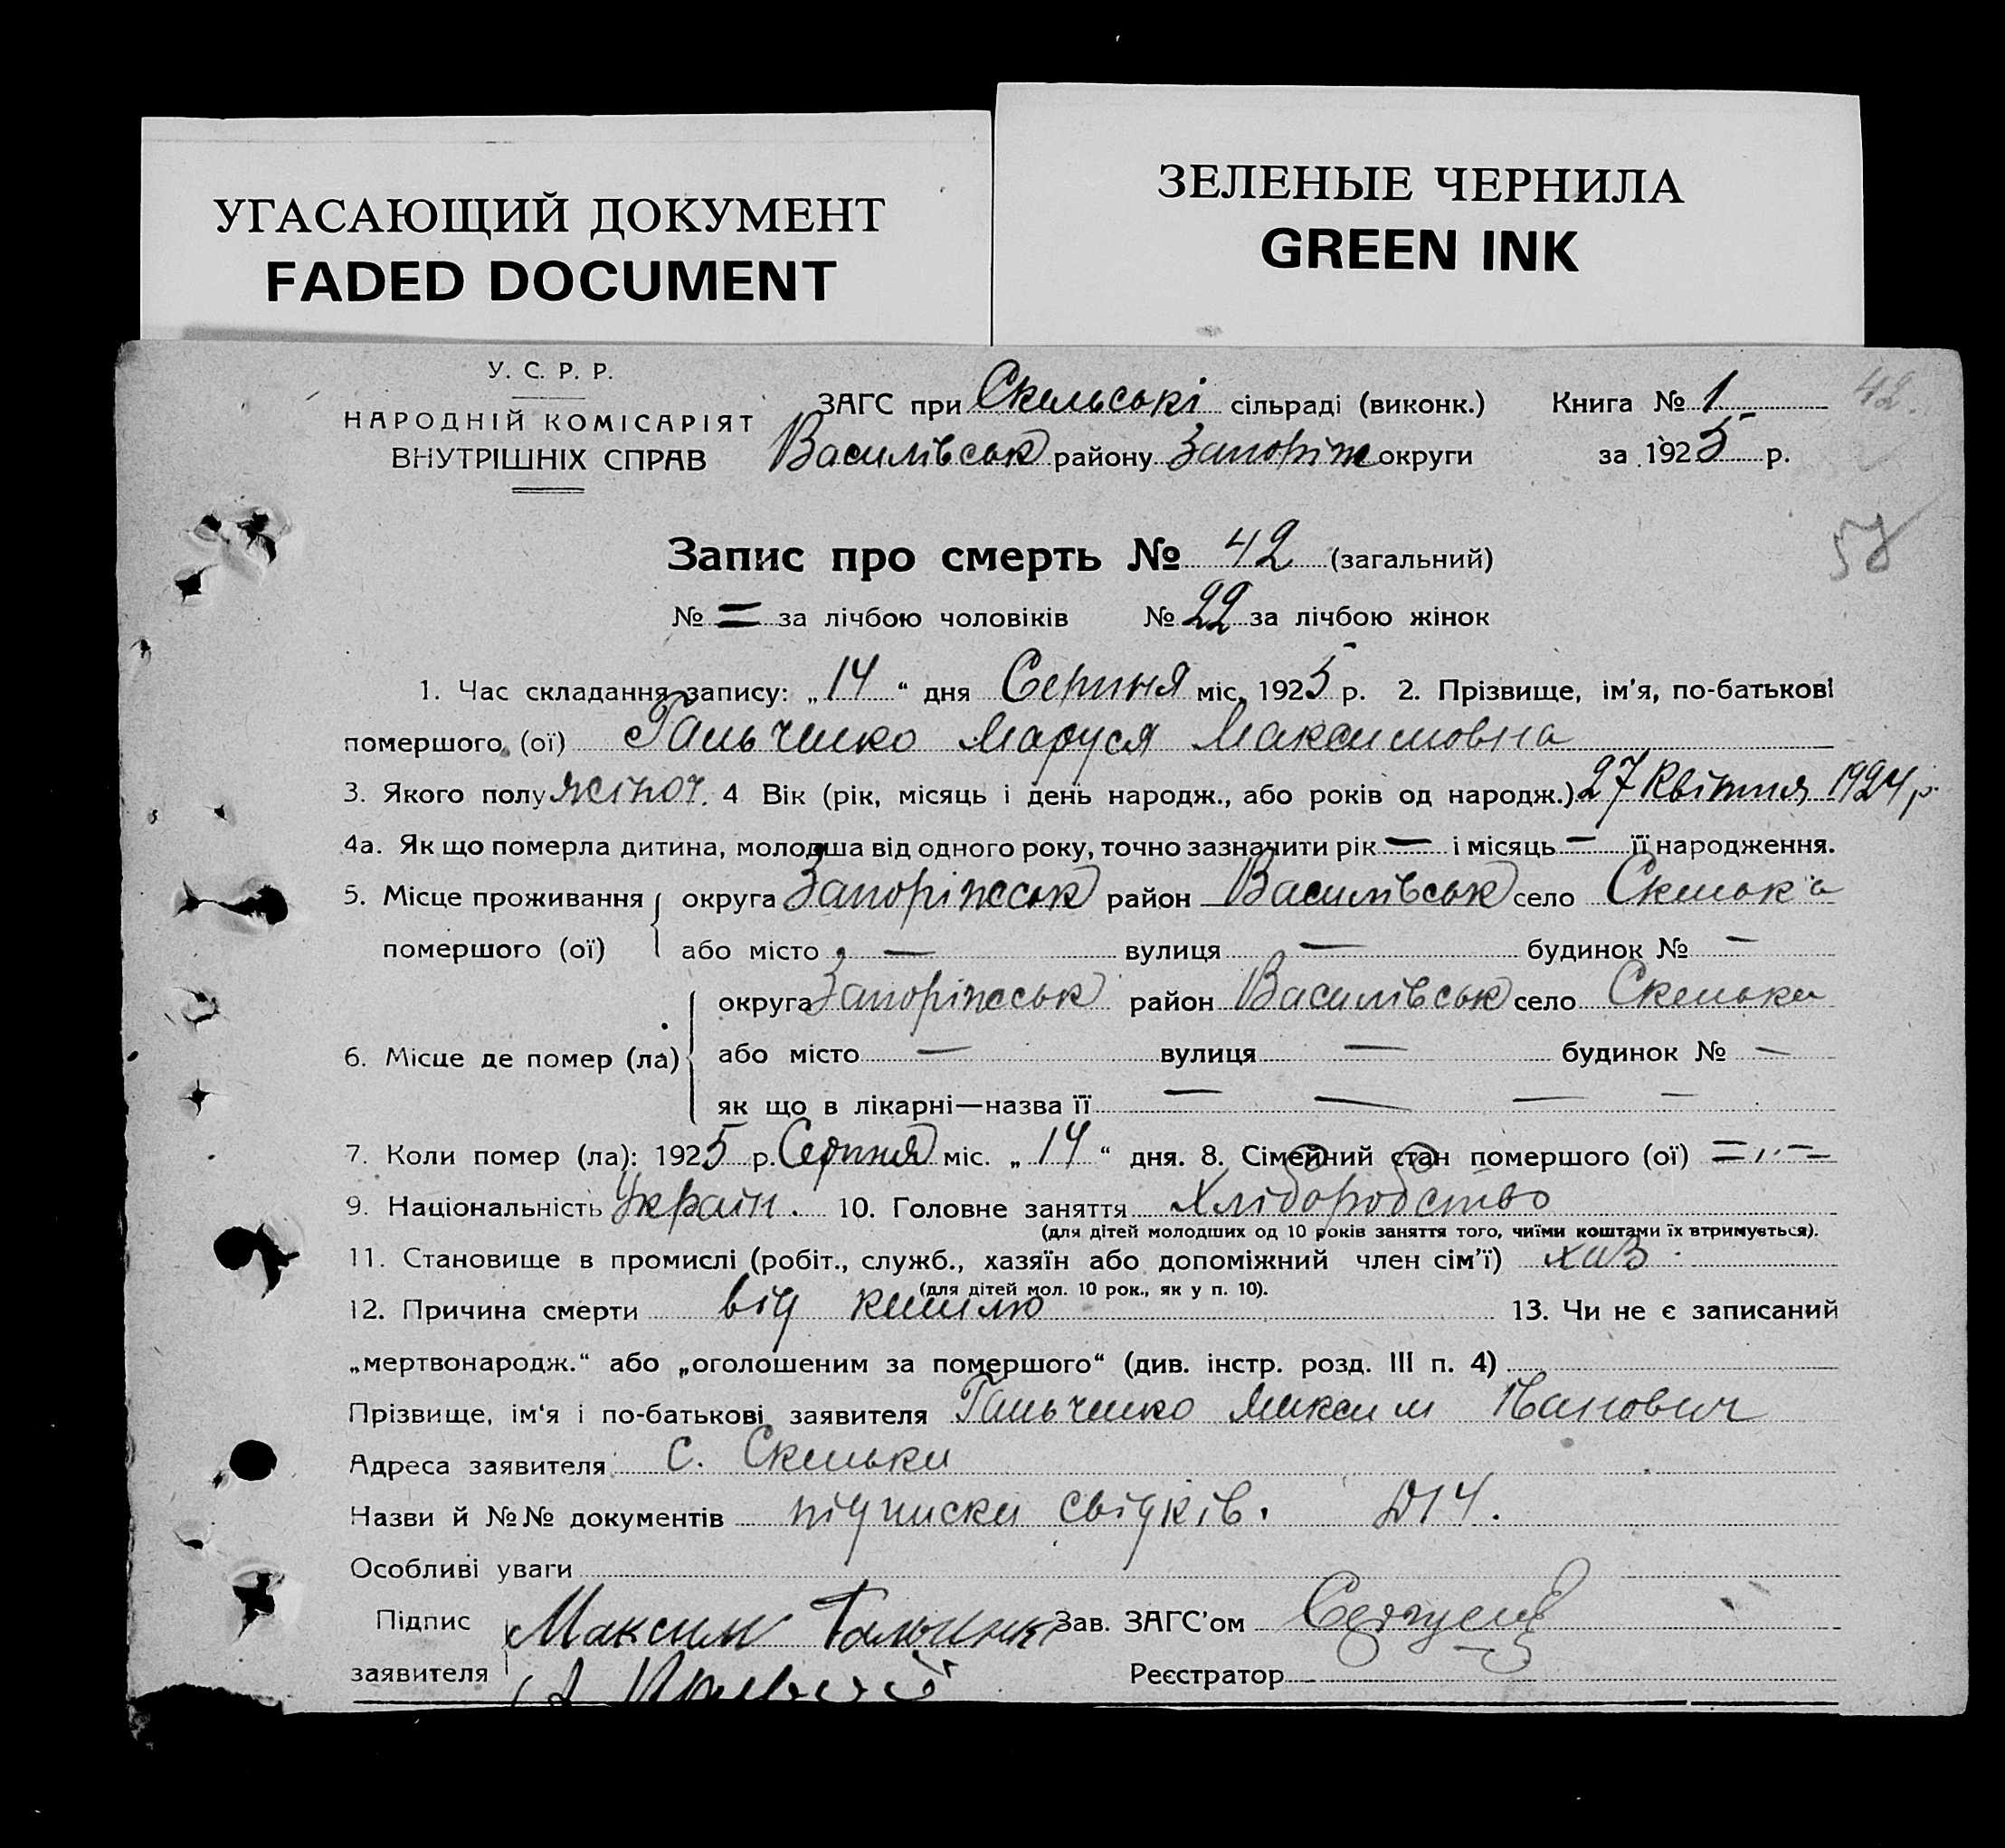 УГАСАЮЩИЙ ДОКУМЕНТ
FADED DOCUMENT
ЗЕЛЕНЫЕ ЧЕРНИЛА
GREEN INK
У. С. Р. Р.
НАРОДНІЙ КОМІСАРІЯТ
ВНУТРІШНІХ СПРАВ
ЗАГС при Скельські сільраді (виконк.) Книга № 1 42.
Василівськ району Запоріж округи за 1925 р.
Запис про смерть № 42 (загальний)
№ = за лічбою чоловіків № 22 за лічбою жінок
1. Час складання запису: „14“ дня Серпня міс. 1925 р. 2. Прізвище, ім'я, по-батькові
помершого (ої) Гальченко Маруся Максимовна
3. Якого полу жіноч. 4 Вік (рік, місяць і день народж., або років од народж.) 27 Квітня 1924 р.
4а. Як що померла дитина, молодша від одного року, точно зазначити рік — і місяць — її народження.
5. Місце проживання помершого (ої) округа Запоріжськ район Василівськ село Скелька
або місто — вулиця — будинок № —
6. Місце де помер (ла) округа Запоріжськ район Василівськ село Скельки
або місто — вулиця — будинок № —
як що в лікарні—назва її — — — —
7. Коли помер (ла): 1925 р. Серпня міс. „14“ дня. 8. Сімейний стан помершого (ої)
9. Національність Україн. 10. Головне заняття Хліборобство
(для дітей молодших од 10 років заняття того, чиїми коштами їх втримується).
11. Становище в промислі (робіт., служб., хазяїн або допоміжний член сім'ї) хаз
(для дітей мол. 10 рок., як у п. 10).
12. Причина смерти від кашлю 13. Чи не є записаний
„мертвонародж.“ або „оголошеним за помершого“ (див. інстр. розд. III п. 4)
Прізвище, ім'я і по-батькові заявителя Гальченко Максим Іванович
Адреса заявителя с. Скельки
Назви й №№ документів підписки свідків. №14.
Особливі уваги
Підпис заявителя Максим Зав. ЗАГС'ом
Реєстратор